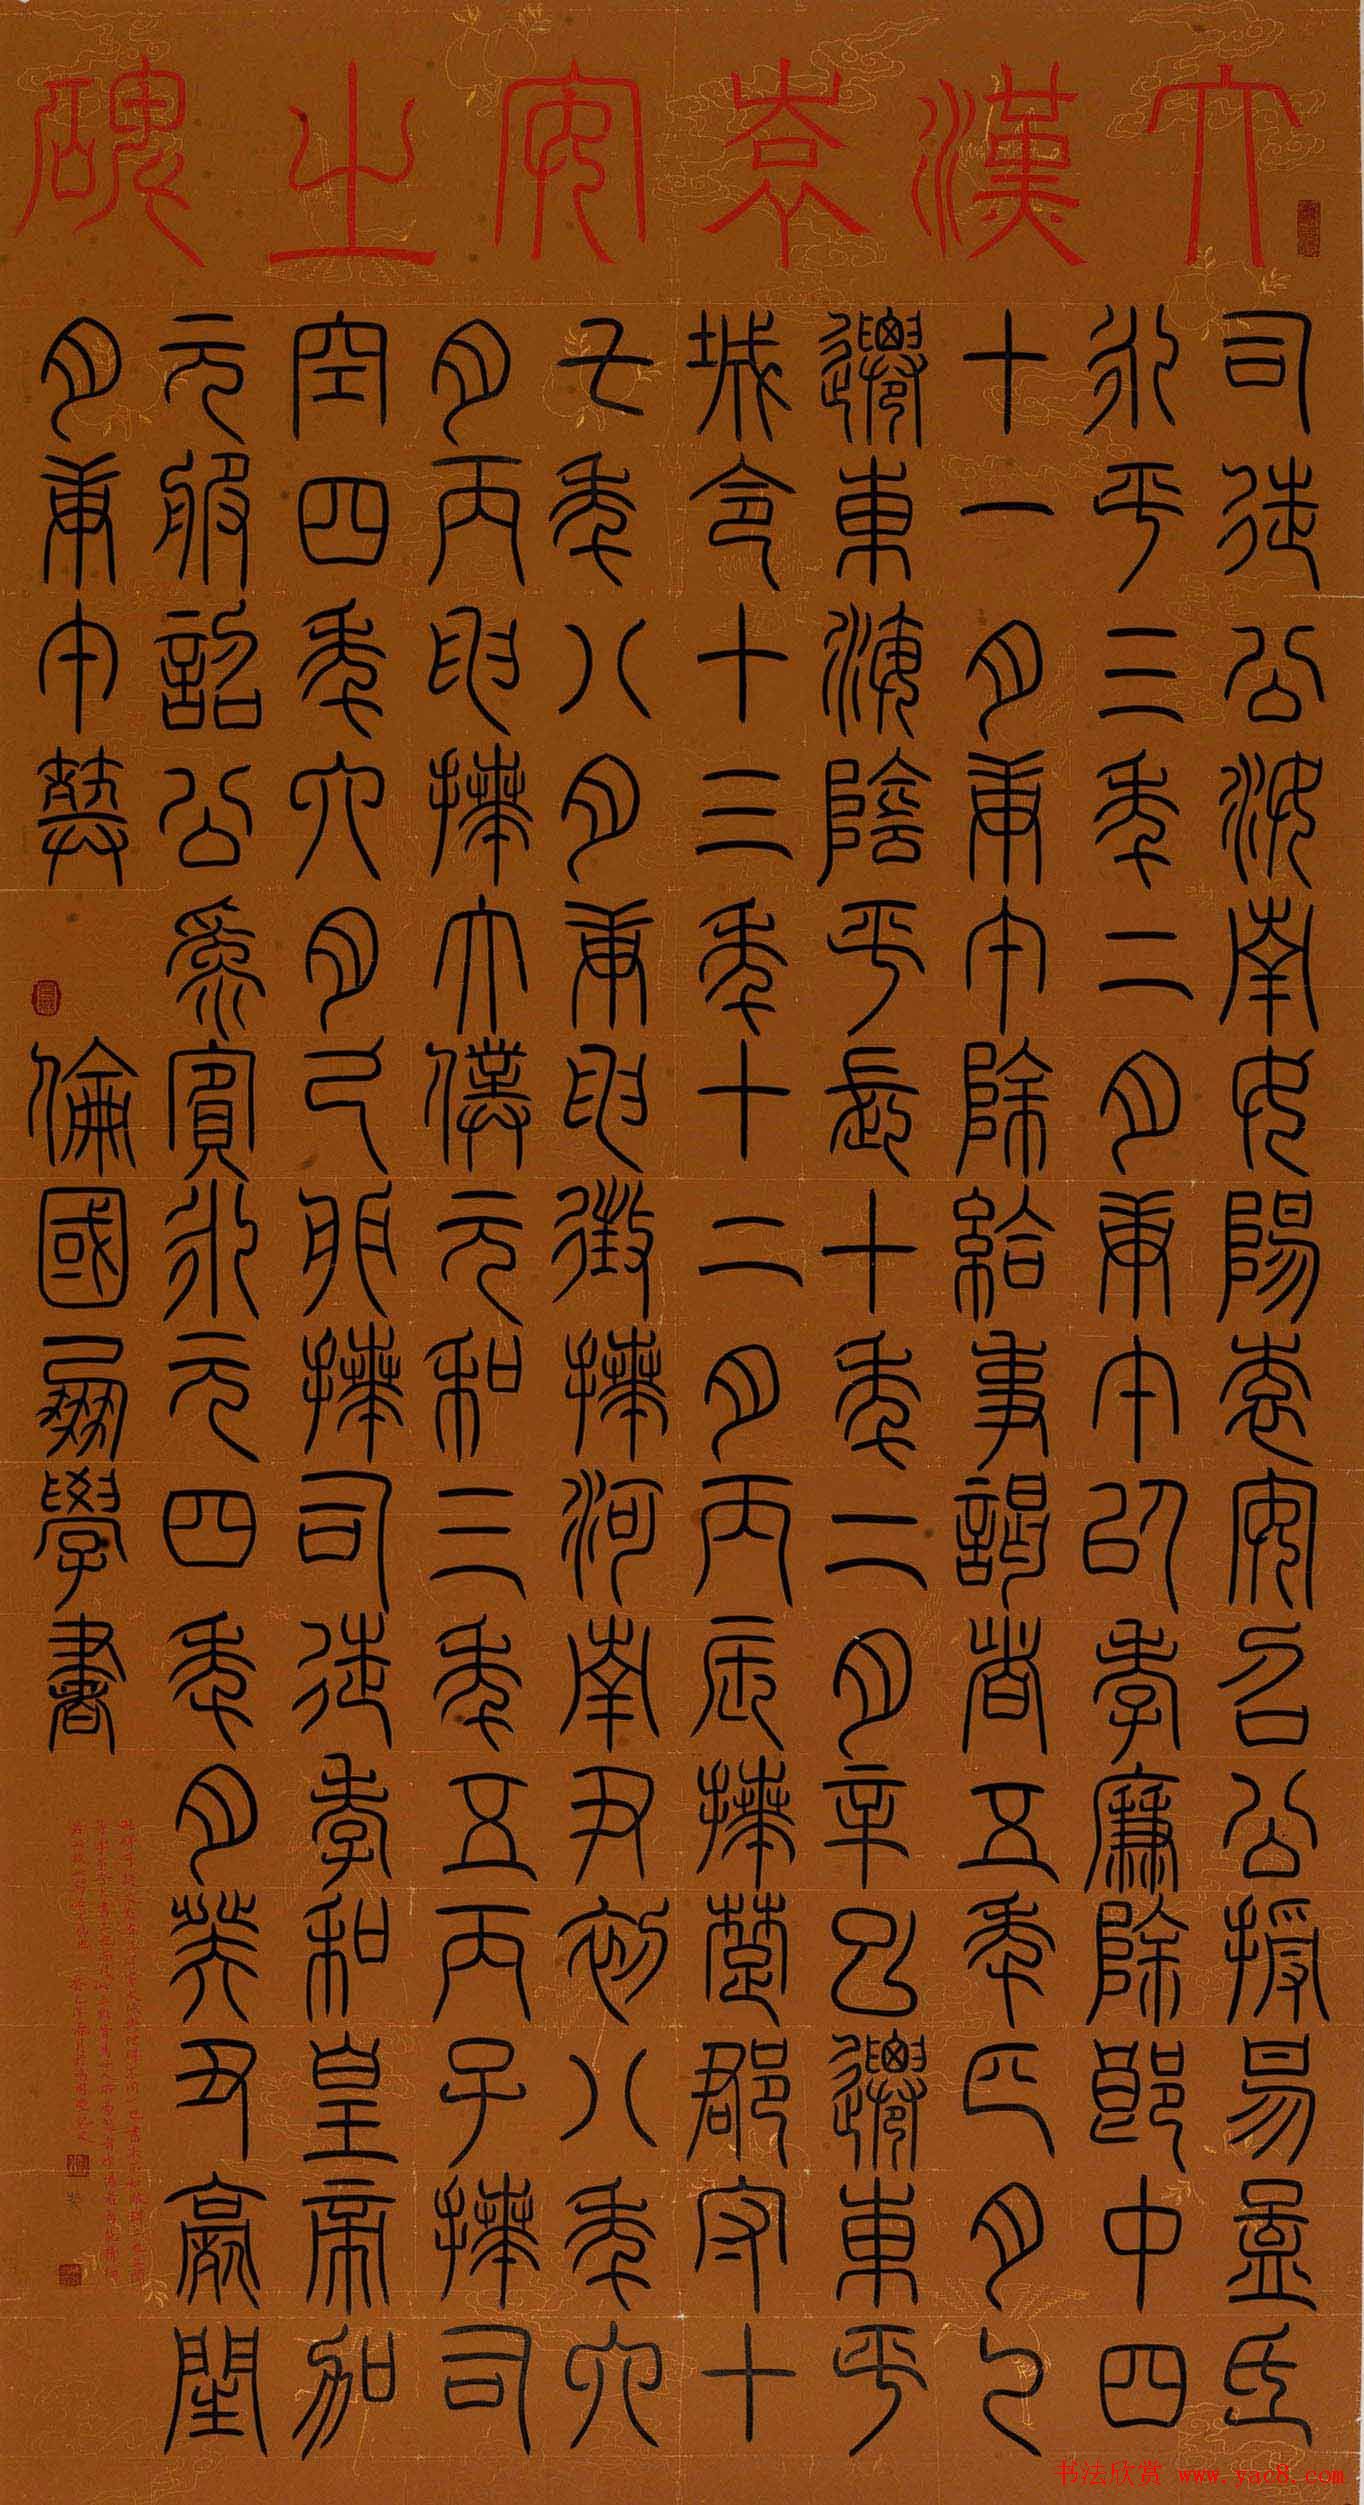 大漢袁安之碑
司徒公汝南女陽袁安召公授易孟氏
永平三年二月庚午以孝廉除郎中四
十一月庚午除給事謁者五年正月乙
遷東海陰平長十年二月辛巳遷東平
城令十三年十二月丙辰拜楚郡守十
七年八月庚申徵拜河南尹初八年六
月丙申拜太僕元和三年五丙子拜司
空四年六月己卯拜司徒孝和皇帝加
元服詔公為賓永元四年月癸丑薨閏
月庚午葬 倫國學書
书法欣赏 www.yac8.com